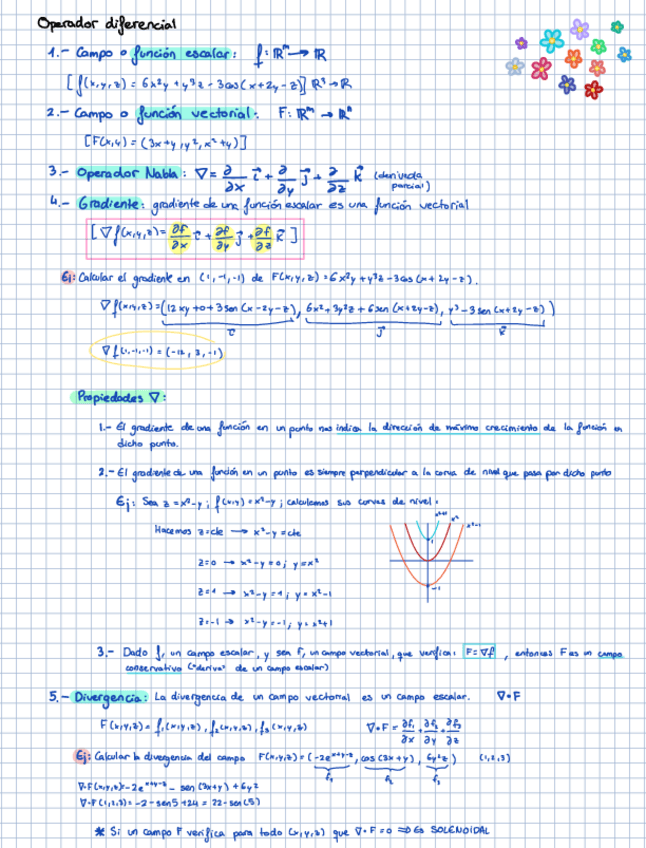 Operador diferencial
1.- Campo o función escalar: f: ℝᵐ → ℝ
[f(x,y,z) = 6x²y + y³z - 3cos(x+2y-z)] ℝ³→ℝ
2.- Campo o función vectorial: F: ℝᵐ → ℝⁿ
[F(x,y) = (3x+y, y², x²+y)]
3.- Operador Nabla: ∇ = ∂/∂x i⃗ + ∂/∂y j⃗ + ∂/∂z k⃗ (derivada parcial)
4.- Gradiente: gradiente de una función escalar es una función vectorial
[∇f(x,y,z) = ∂f/∂x i⃗ + ∂f/∂y j⃗ + ∂f/∂z k⃗]
Ej: Calcular el gradiente en (1,-1,-1) de F(x,y,z) = 6x²y + y³z - 3cos(x+2y-z).
∇f(x,y,z) = (12xy + 0 + 3sen(x-2y-z), 6x² + 3y²z + 6sen(x+2y-z), y³ - 3sen(x+2y-z))
i⃗ j⃗ k⃗
∇f(1,-1,-1) = (-12, 3, -1)
Propiedades ∇:
1.- El gradiente de una función en un punto nos indica la dirección de máximo crecimiento de la función en
dicho punto.
2.- El gradiente de una función en un punto es siempre perpendicular a la curva de nivel que pasa por dicho punto
Ej: Sea z = x²-y; f(x,y) = x²-y; calculamos sus curvas de nivel:
Hacemos z=cte → x²-y = cte
x²+1 x² x²-1
z=0 → x²-y=0; y=x²
1
z=1 → x²-y=1; y=x²-1
-1
z=-1 → x²-y=-1; y=x²+1
3.- Dado f, un campo escalar, y sea F, un campo vectorial, que verifica: F=∇f, entonces F es un campo
conservativo ("deriva" de un campo escalar)
5.- Divergencia: La divergencia de un campo vectorial es un campo escalar. ∇•F
F(x,y,z) = f₁(x,y,z), f₂(x,y,z), f₃(x,y,z) ∇•F = ∂f₁/∂x + ∂f₂/∂y + ∂f₃/∂z
Ej: Calcular la divergencia del campo F(x,y,z) = (-2e^(x+y-z), cos(3x+y), 6y²z) (1,2,3)
f₁ f₂ f₃
∇•F(x,y,z) = -2e^(x+y-z) - sen(3x+y) + 6y²
∇•F(1,2,3) = -2 - sen5 + 24 = 22 - sen(5)
* Si un campo F verifica para todo (x,y,z) que ∇•F=0 ⇒ Es SOLENOIDAL